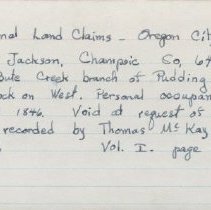 nal Land Claims - Oregon Cit
Jackson, Champoic Co, 64
Bute Creek branch of Pudding
ock on West. Personal occupan
1846. Void at request of
recorded by Thomas McKay
Vol. I. page